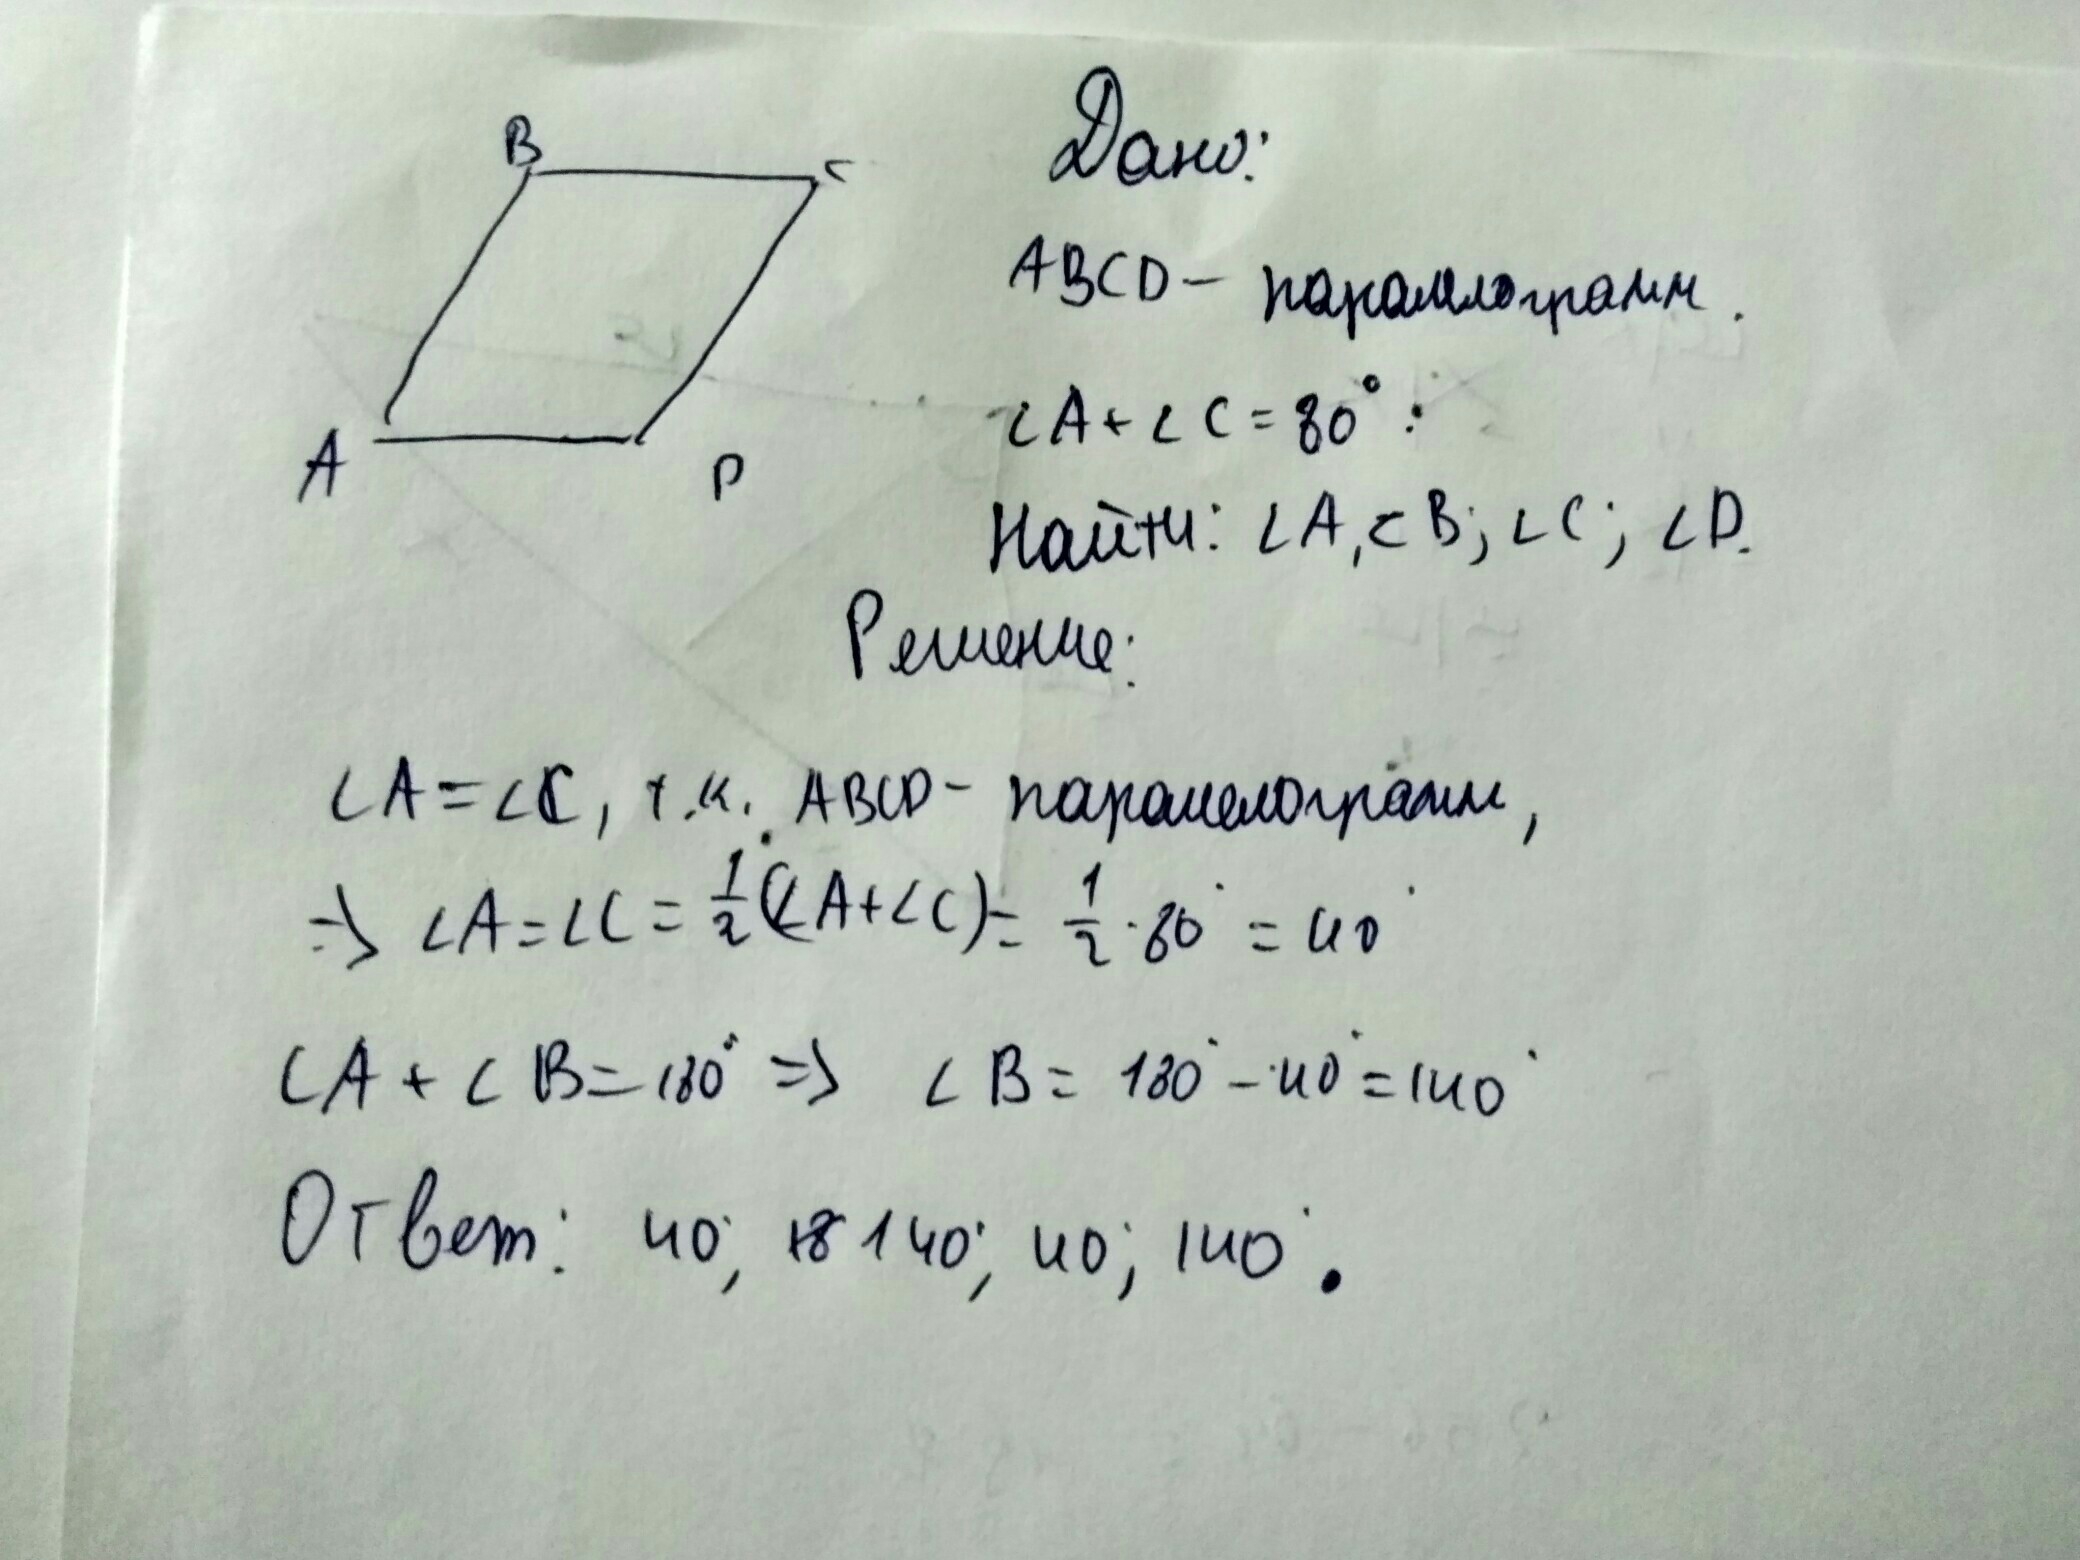 B
C
A
D
Дано:
ABCD – параллограмм.
∠A+∠C=80°.
Найти: ∠A, ∠B; ∠C; ∠D.
Решение:
∠A=∠C, т.к. ABCD – параллелограмм,
=> ∠A=∠C=1/2(∠A+∠C)=1/2·80°=40°
∠A+∠B=180° => ∠B=180°-40°=140°
Ответ: 40°; 140°; 40°; 140°.